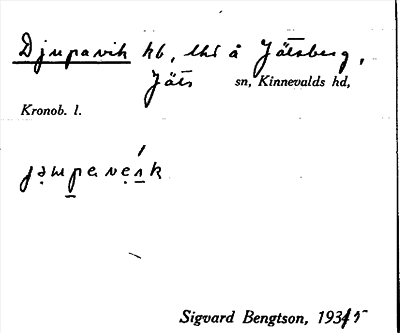 Djupavik hb, lht å Jätsberg,
Jäts sn, Kinnevalds hd,
Kronob. l.
Sigvard Bengtson, 1935